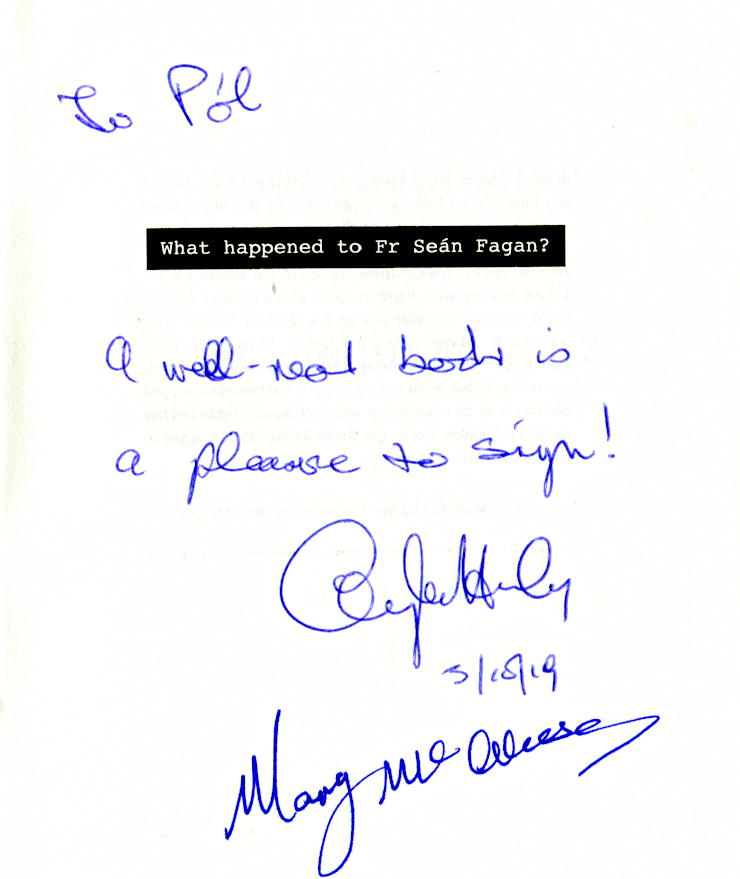 To Pól
What happened to Fr Seán Fagan?
A well-read book is
a pleasure to sign!
Angela Hanley
Mary McAleese